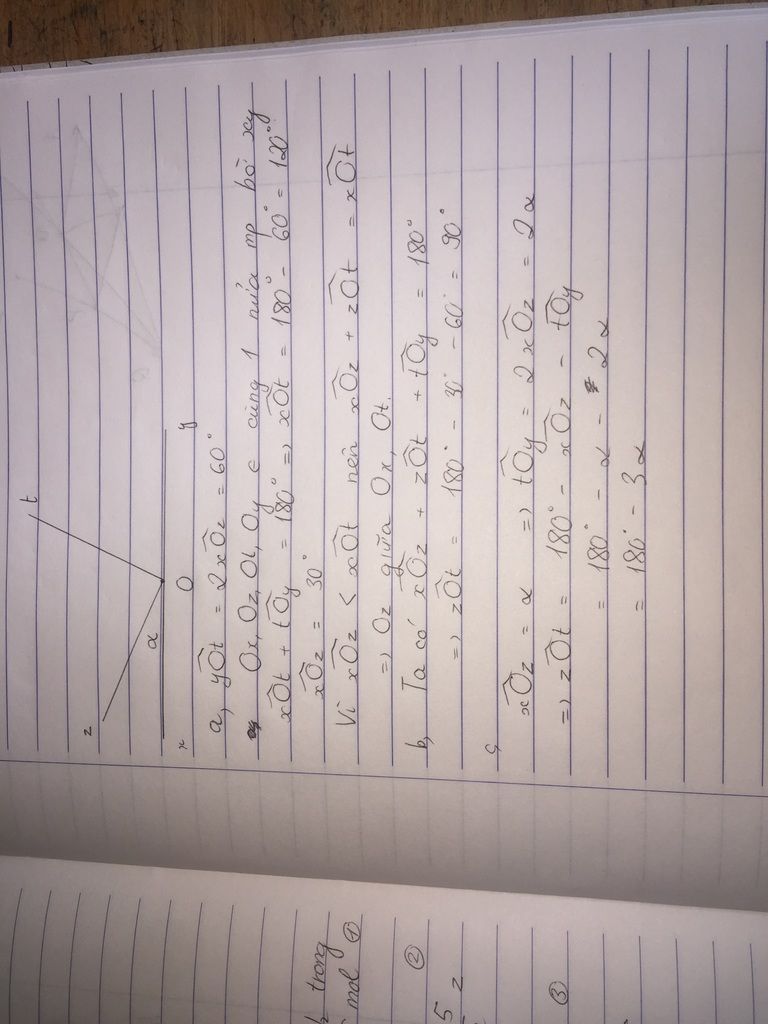 t
z
α
x O y
a, yÔt = 2xÔz = 60°
Ox, Oz, Ot, Oy ∈ cùng 1 nửa mp bờ xy
xÔt + tÔy = 180° => xÔt = 180° - 60° = 120°
xÔz = 30°
Vì xÔz < xÔt nên xÔz + zÔt = xÔt
=> Oz giữa Ox, Ot.
b, Ta có xÔz + zÔt + tÔy = 180°
=> zÔt = 180° - 30° - 60° = 90°
c,
xÔz = α => tÔy = 2xÔz = 2α
=> zÔt = 180° - xÔz - tÔy
= 180° - α - 2α
= 180° - 3α
trong
mol ①
②
5 z
③